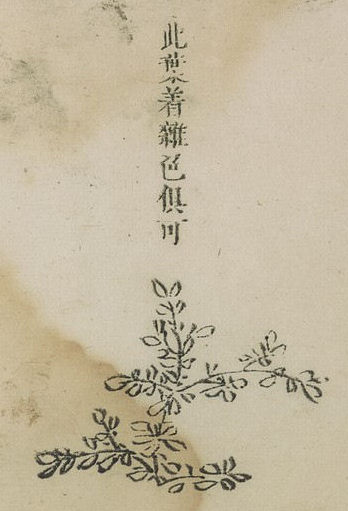 此葉着雜色俱可